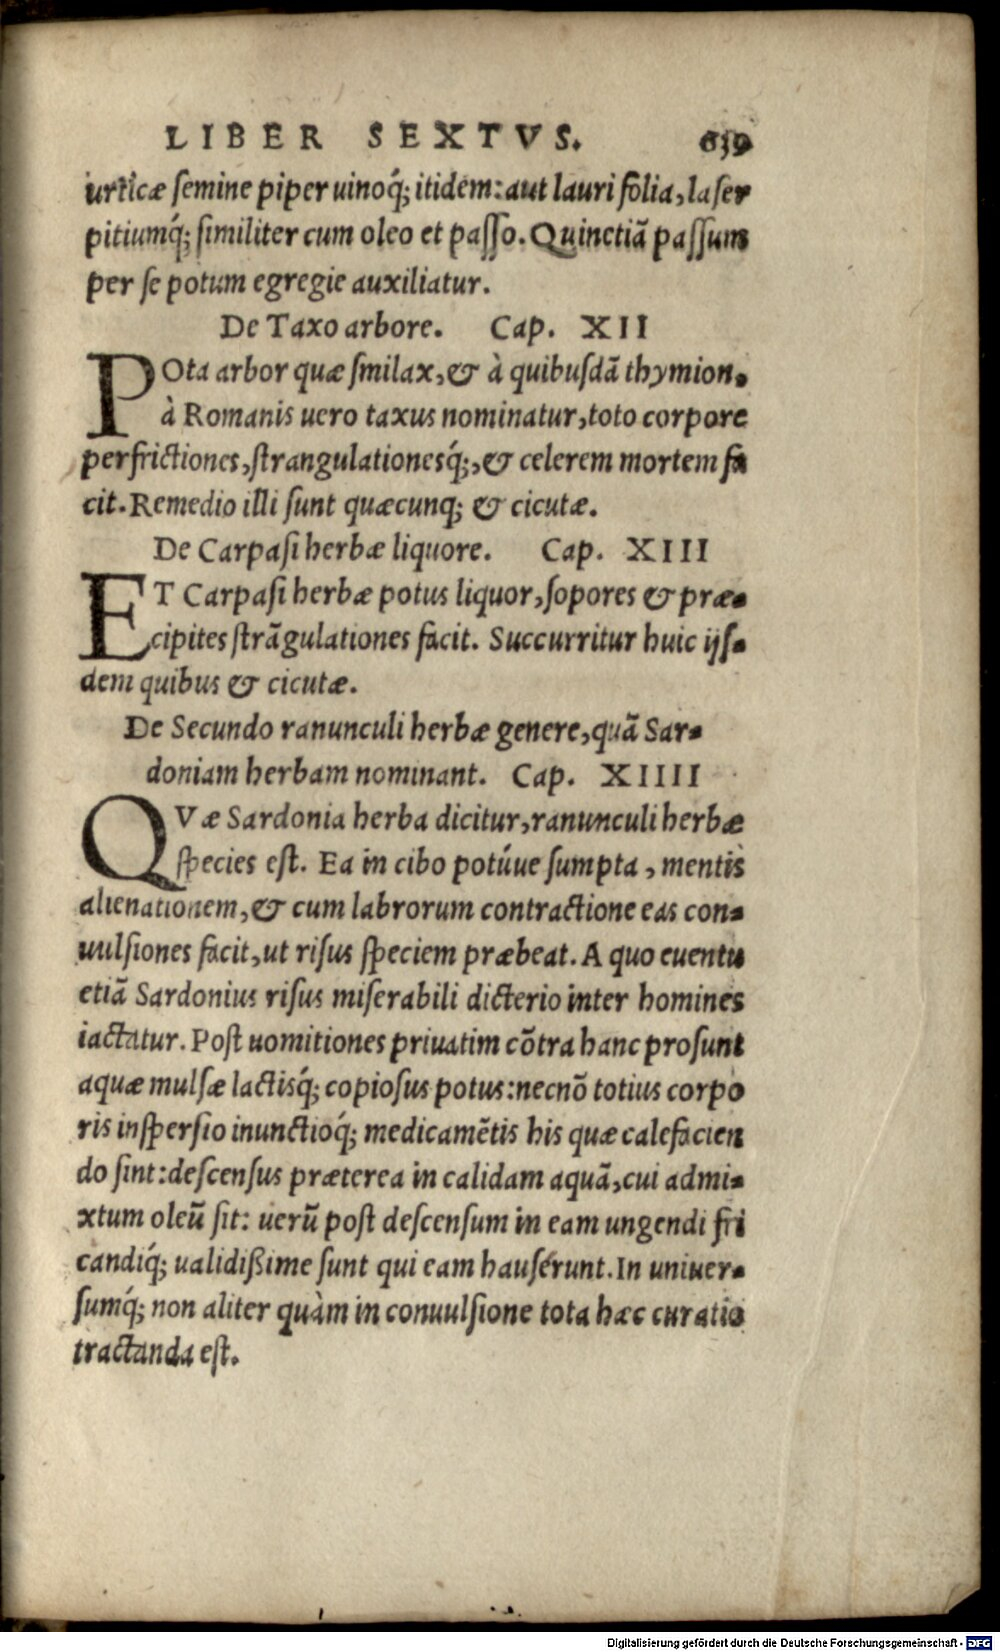 LIBER SEXTVS. 639
urticæ semine piper uinoq́; itidem: aut lauri folia, laser
pitiumq́; similiter cum oleo et passo. Quinetiã passum
per se potum egregie auxiliatur.
De Taxo arbore. Cap. XII
POta arbor quæ smilax, & à quibusdã thymion,
à Romanis uero taxus nominatur, toto corpore
perfrictiones, strangulationesq́;, & celerem mortem fa
cit. Remedio illi sunt quæcunq; & cicutæ.
De Carpasi herbæ liquore. Cap. XIII
ET Carpasi herbæ potus liquor, sopores & præ-
cipites strãgulationes facit. Succurritur huic ijs-
dem quibus & cicutæ.
De Secundo ranunculi herbæ genere, quã Sar-
doniam herbam nominant. Cap. XIIII
QVæ Sardonia herba dicitur, ranunculi herbæ
species est. Ea in cibo potúue sumpta, mentis
alienationem, & cum labrorum contractione eas con-
uulsiones facit, ut risus speciem præbeat. A quo euentu
etiã Sardonius risus miserabili dicterio inter homines
iactatur. Post uomitiones priuatim cõtra hanc prosunt
aquæ mulsæ lactisq́; copiosus potus: necnõ totius corpo
ris inspersio inunctioq́; medicamẽtis his quæ calefacien
do sint: descensus præterea in calidam aquã, cui admi-
xtum oleũ sit: uerũ post descensum in eam ungendi fri
candiq́; ualidißime sunt qui eam hausérunt. In uniuer-
sumq́; non aliter quàm in conuulsione tota hæc curatio
tractanda est.
Digitalisierung gefördert durch die Deutsche Forschungsgemeinschaft - DFG